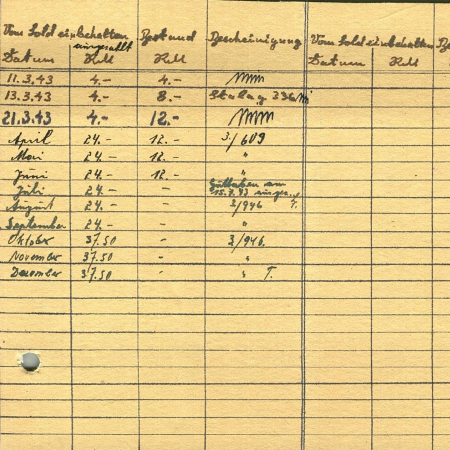 Vom Sold einbehalten Bestand Bescheinigung Vom Sold einbehalten Be
eingezahlt
Datum RM RM Datum RM
11.3.43 4.- 4.-
13.3.43 4.- 8.- Stalag 336
21.3.43 4.- 12.-
April 24.- 12.- 3/609
Mai 24.- 12.- "
Juni 24.- 12.- "
Juli 24.- - Guthaben am
15.7.43
August 24.- - 3/946
September 24.- - "
Oktober 37.50 - 3/946.
November 37.50 - "
Dezember 37.50 - " T.